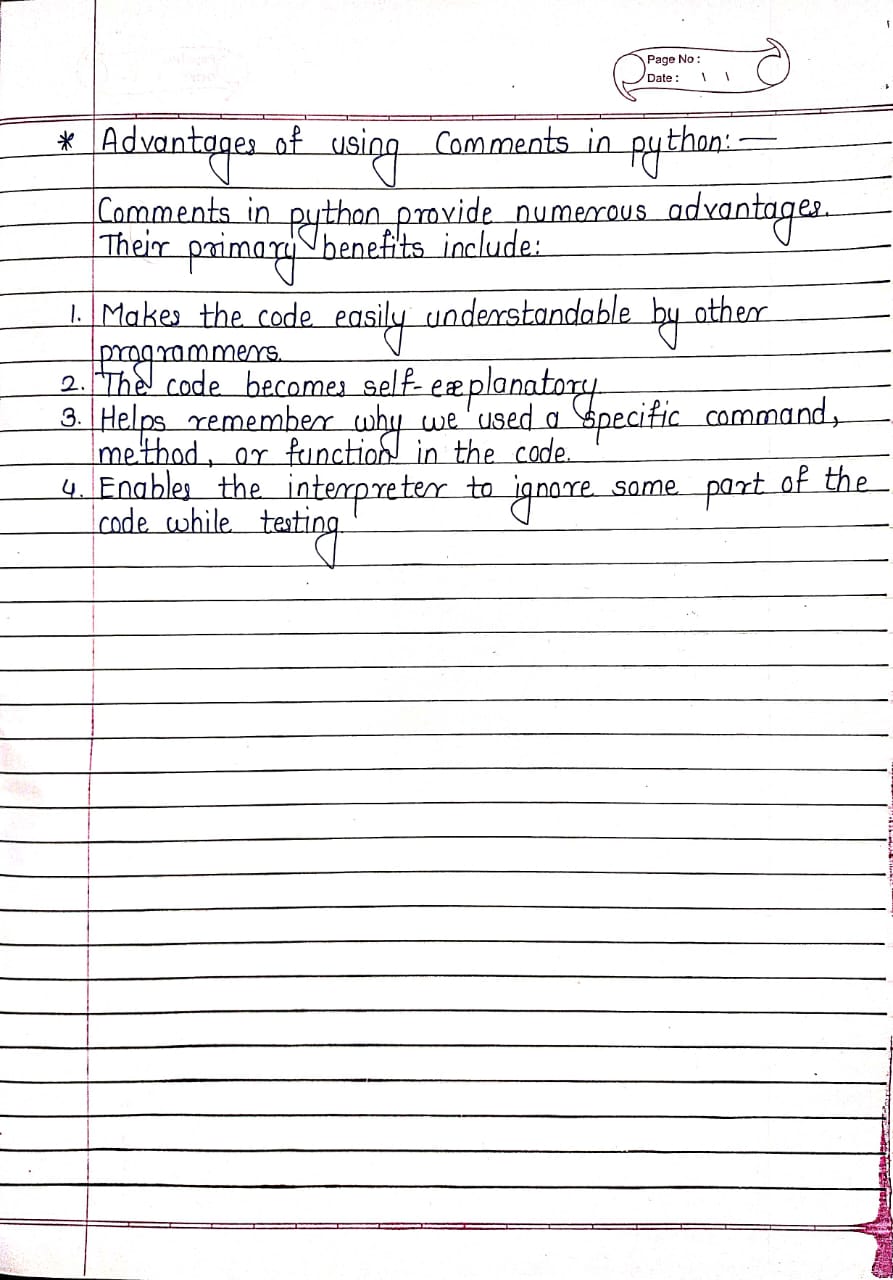 Page No :
Date : \ \
* Advantages of using Comments in python: —
Comments in python provide numerous advantages.
Their primary benefits include:
1. Makes the code easily understandable by other
programmers.
2. The code becomes self-explanatory.
3. Helps remember why we used a specific command,
method, or function in the code.
4. Enables the interpreter to ignore some part of the
code while testing